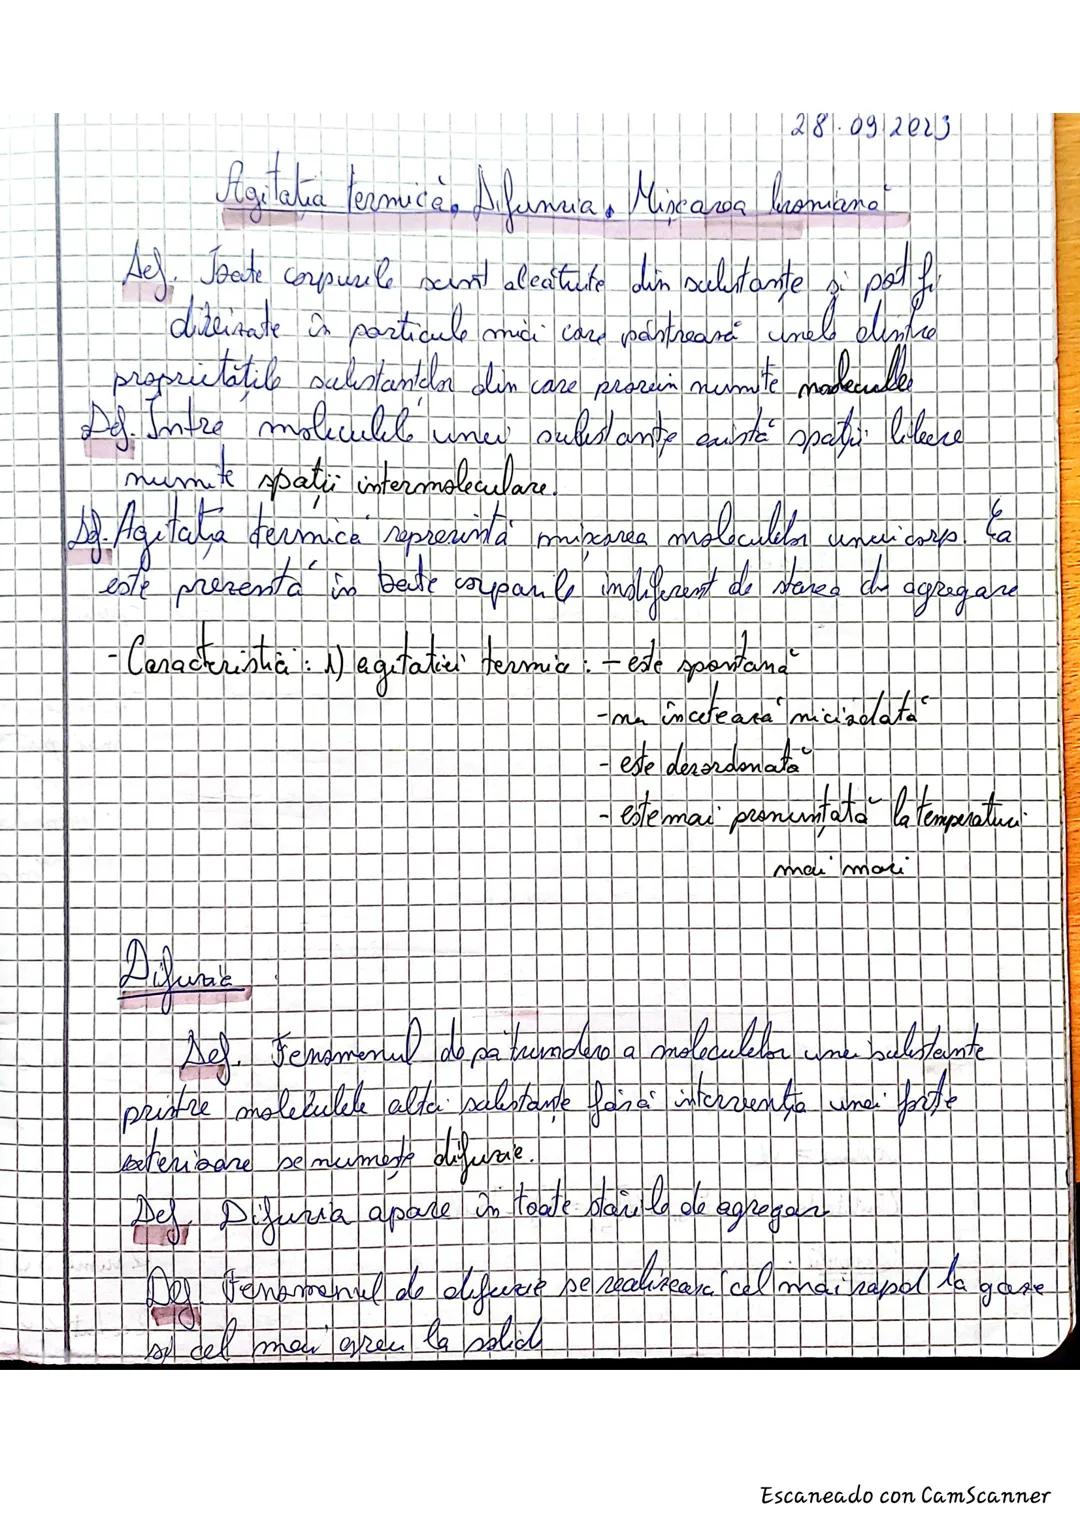 28.09.2023
Agitația termică. Difuzia. Mișcarea browniană
Def. Toate corpurile sunt alcătuite din substanțe și pot fi
divizate în particule mici care păstrează unele dintre
proprietățile substanțelor din care provin numite molecule
Def. Între moleculele unei substanțe există spații libere
numite spații intermoleculare.
Def. Agitația termică reprezintă mișcarea moleculelor unui corp. Ea
este prezentă în toate corpurile indiferent de starea de agregare
- Caracteristici: 1) agitației termice: - este spontană
- nu încetează niciodată
- este dezordonată
- este mai pronunțată la temperaturi
mai mari
Difuzie
Def. Fenomenul de pătrundere a moleculelor unei substanțe
printre moleculele altei substanțe fără intervenția unei forțe
exterioare se numește difuzie.
Def. Difuzia apare în toate stările de agregare
Def. Fenomenul de difuzie se realizează cel mai rapid la gaze
și cel mai greu la solid
Escaneado con CamScanner